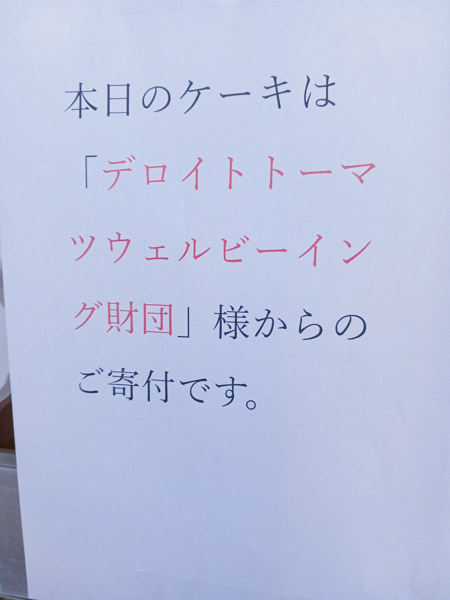 本日のケーキは
「デロイトトーマ
ツウェルビーイン
グ財団」様からの
ご寄付です。